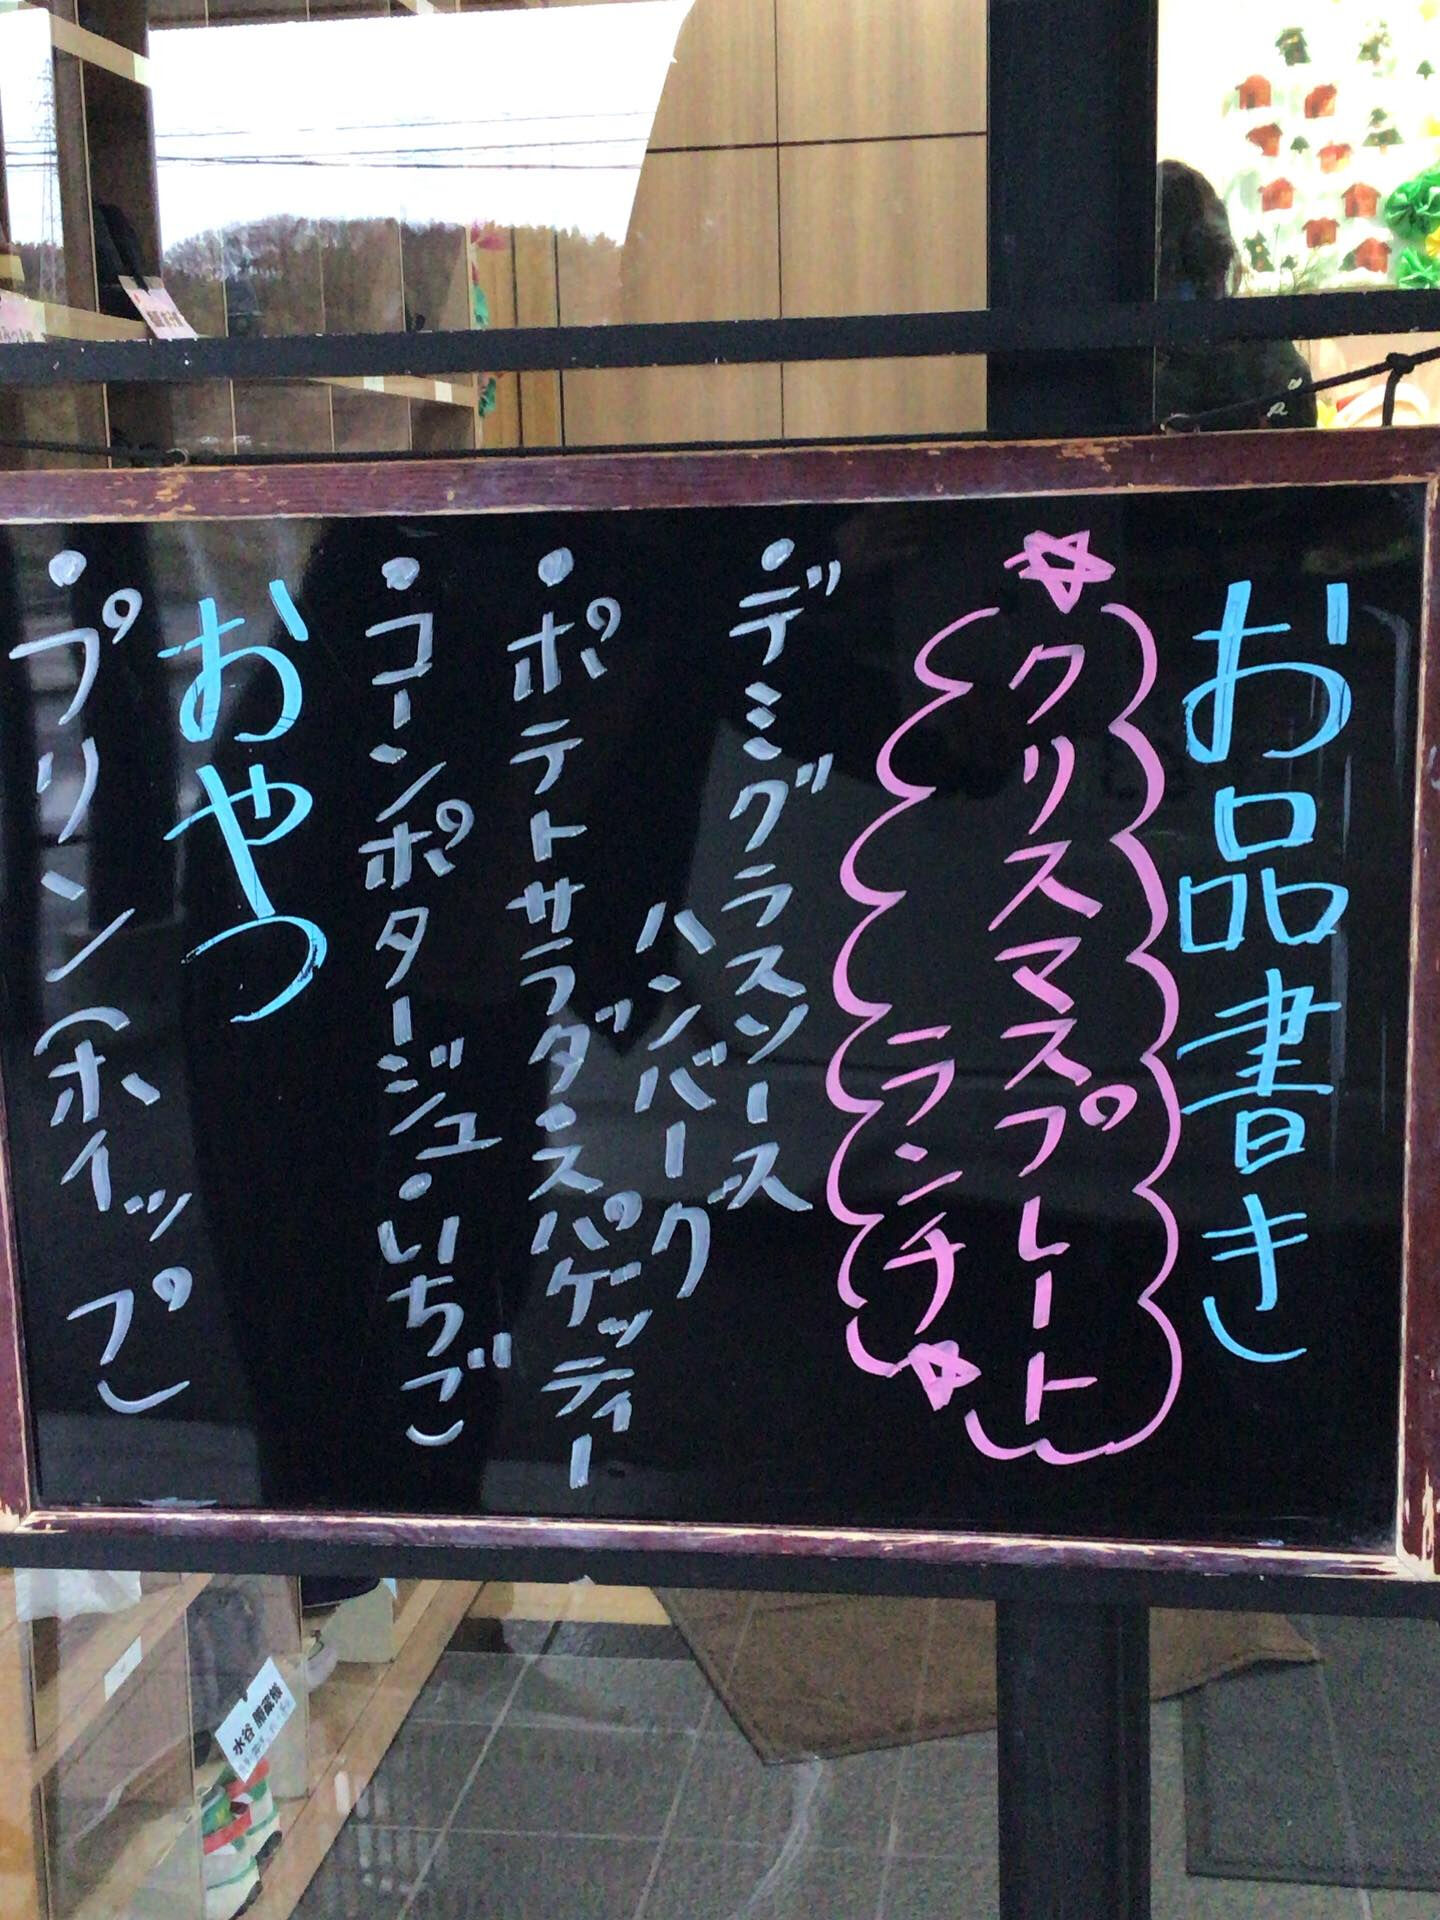 お品書き
☆クリスマスプレート
ランチ☆
・デミグラスソース
ハンバーグ
・ポテトサラダ・スパゲッティー
・コーンポタージュ・いちご
おやつ
・プリン(ホイップ)